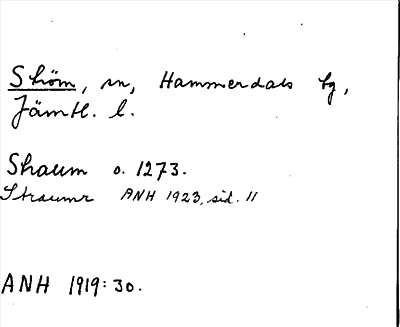 Ström, sn, Hammerdals tg,
Jämtl. l.
Straum o. 1273.
Straumr ANH 1923, sid. 11
ANH 1919:30.